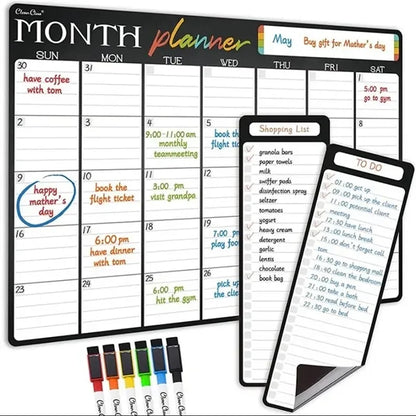 Cliven Cline
MONTH planner
May Buy gift for Mother's day
SUN MON TUE WED THU FRI SAT
30 31 1
have coffee
with tom
5:00 pm
go to gym
2 3 4 5
9:00-11:00 am
monthly
teammeeting
book the
flight ticket
9 10 11 12
happy
mather's
day
book the
flight ticket
3:00 pm
visit grandpa
16 17 18 19
6:00 pm
have dinner
with tom
7:00
play foo
23 24 25 26
6:00 pm
hit the gym
pick up
the
Shopping List
granola bars
paper towels
milk
swiffer pads
disinfection spray
seltzer
tomatoes
yogurt
heavy cream
detergent
garlic
lentis
chocolate
book bag
TO DO
07:00 get up
09:00 pick up the client
11:00 potential client
meeting
12:30 have lunch
13:00 lunch break
15:00 don't forget call
tom
16:30 go to shopping mall
18:40 clean the bedroom
20:00 buy a pen
21:00 take a bath
21:30 read before bed
22:30 go to bed